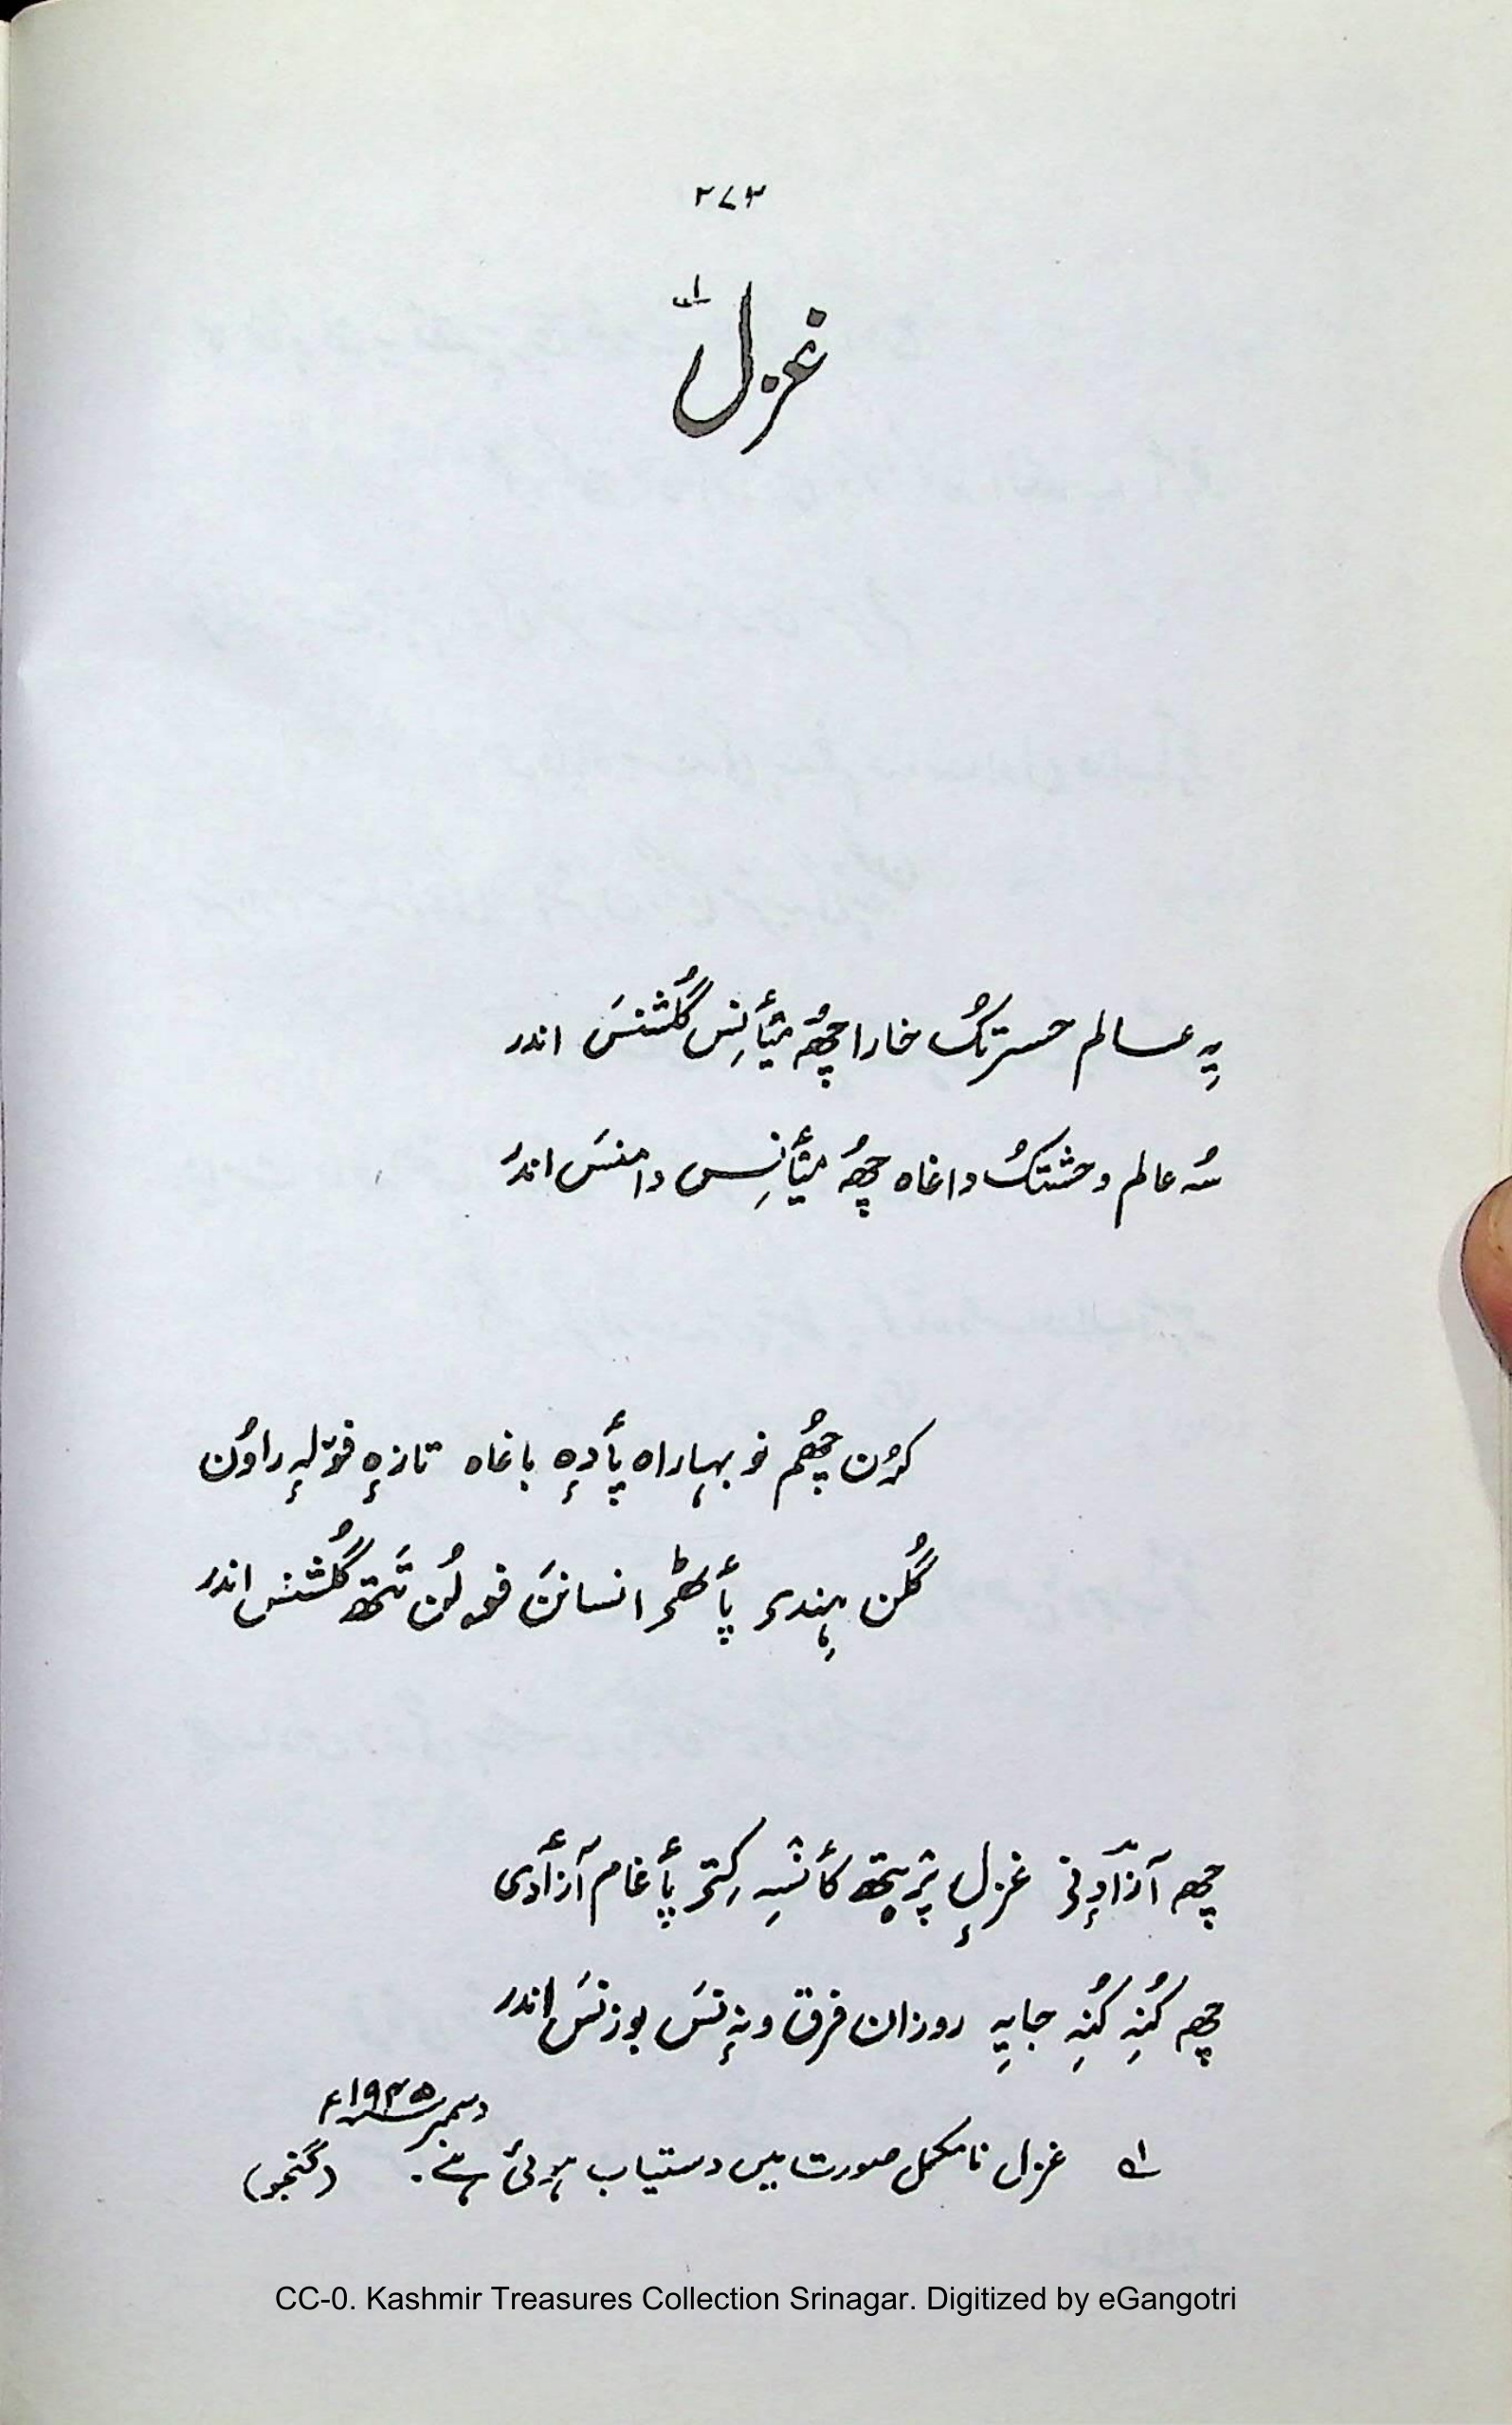 ۲۷۳
غزل ؎۱
یِہ عالم حسرتکُ خارا چھُہ میٛأنِس گُلشنسَ اندر
سُہ عالم وحشتکُ داغاہ چھُہ میٛأنِس دامنسَ اندر
کرُن چھُم نو بہاراہ پأدٕہ باغاہ تازٕہ فۆلہٕ راوُن
گُلن ہِندۍ پأٹھۍ انسانَن فۆلُن تَتھ گُلشنس اندر
چھہ آزادٕنۍ غزلٕ پرٛیتھ کأنسہِ کِتۍ پأغام آزأدی
چھہ کُنہِ کُنہِ جایہِ روزان فرق ونہٕ نسَ بوزنسَ اندر
دسمبر ۱۹۴۵ء
؎۱ غزل نامکمل صورت میں دستیاب ہوئی ہے۔ (گنجو)
CC-0. Kashmir Treasures Collection Srinagar. Digitized by eGangotri